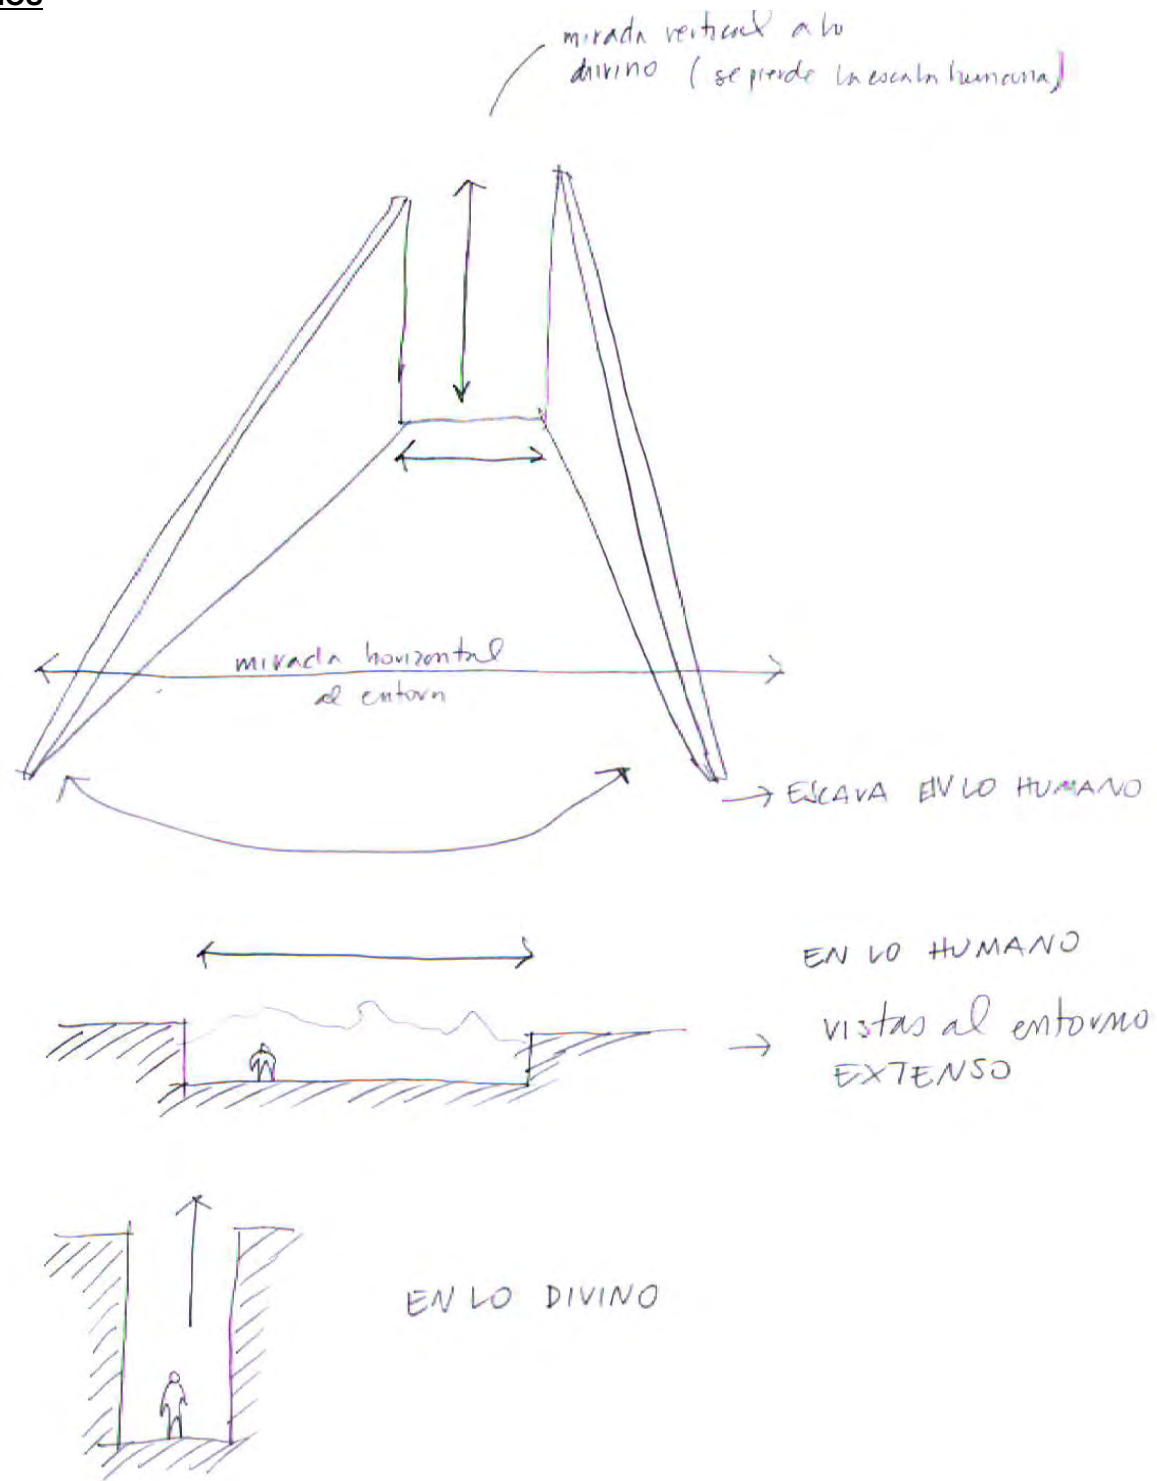 mirada vertical a lo
divino (se pierde la escala humana)
mirada horizontal
al entorn
→ ESCAVA EN LO HUMANO
EN LO HUMANO
→ vistas al entorno
EXTENSO
EN LO DIVINO